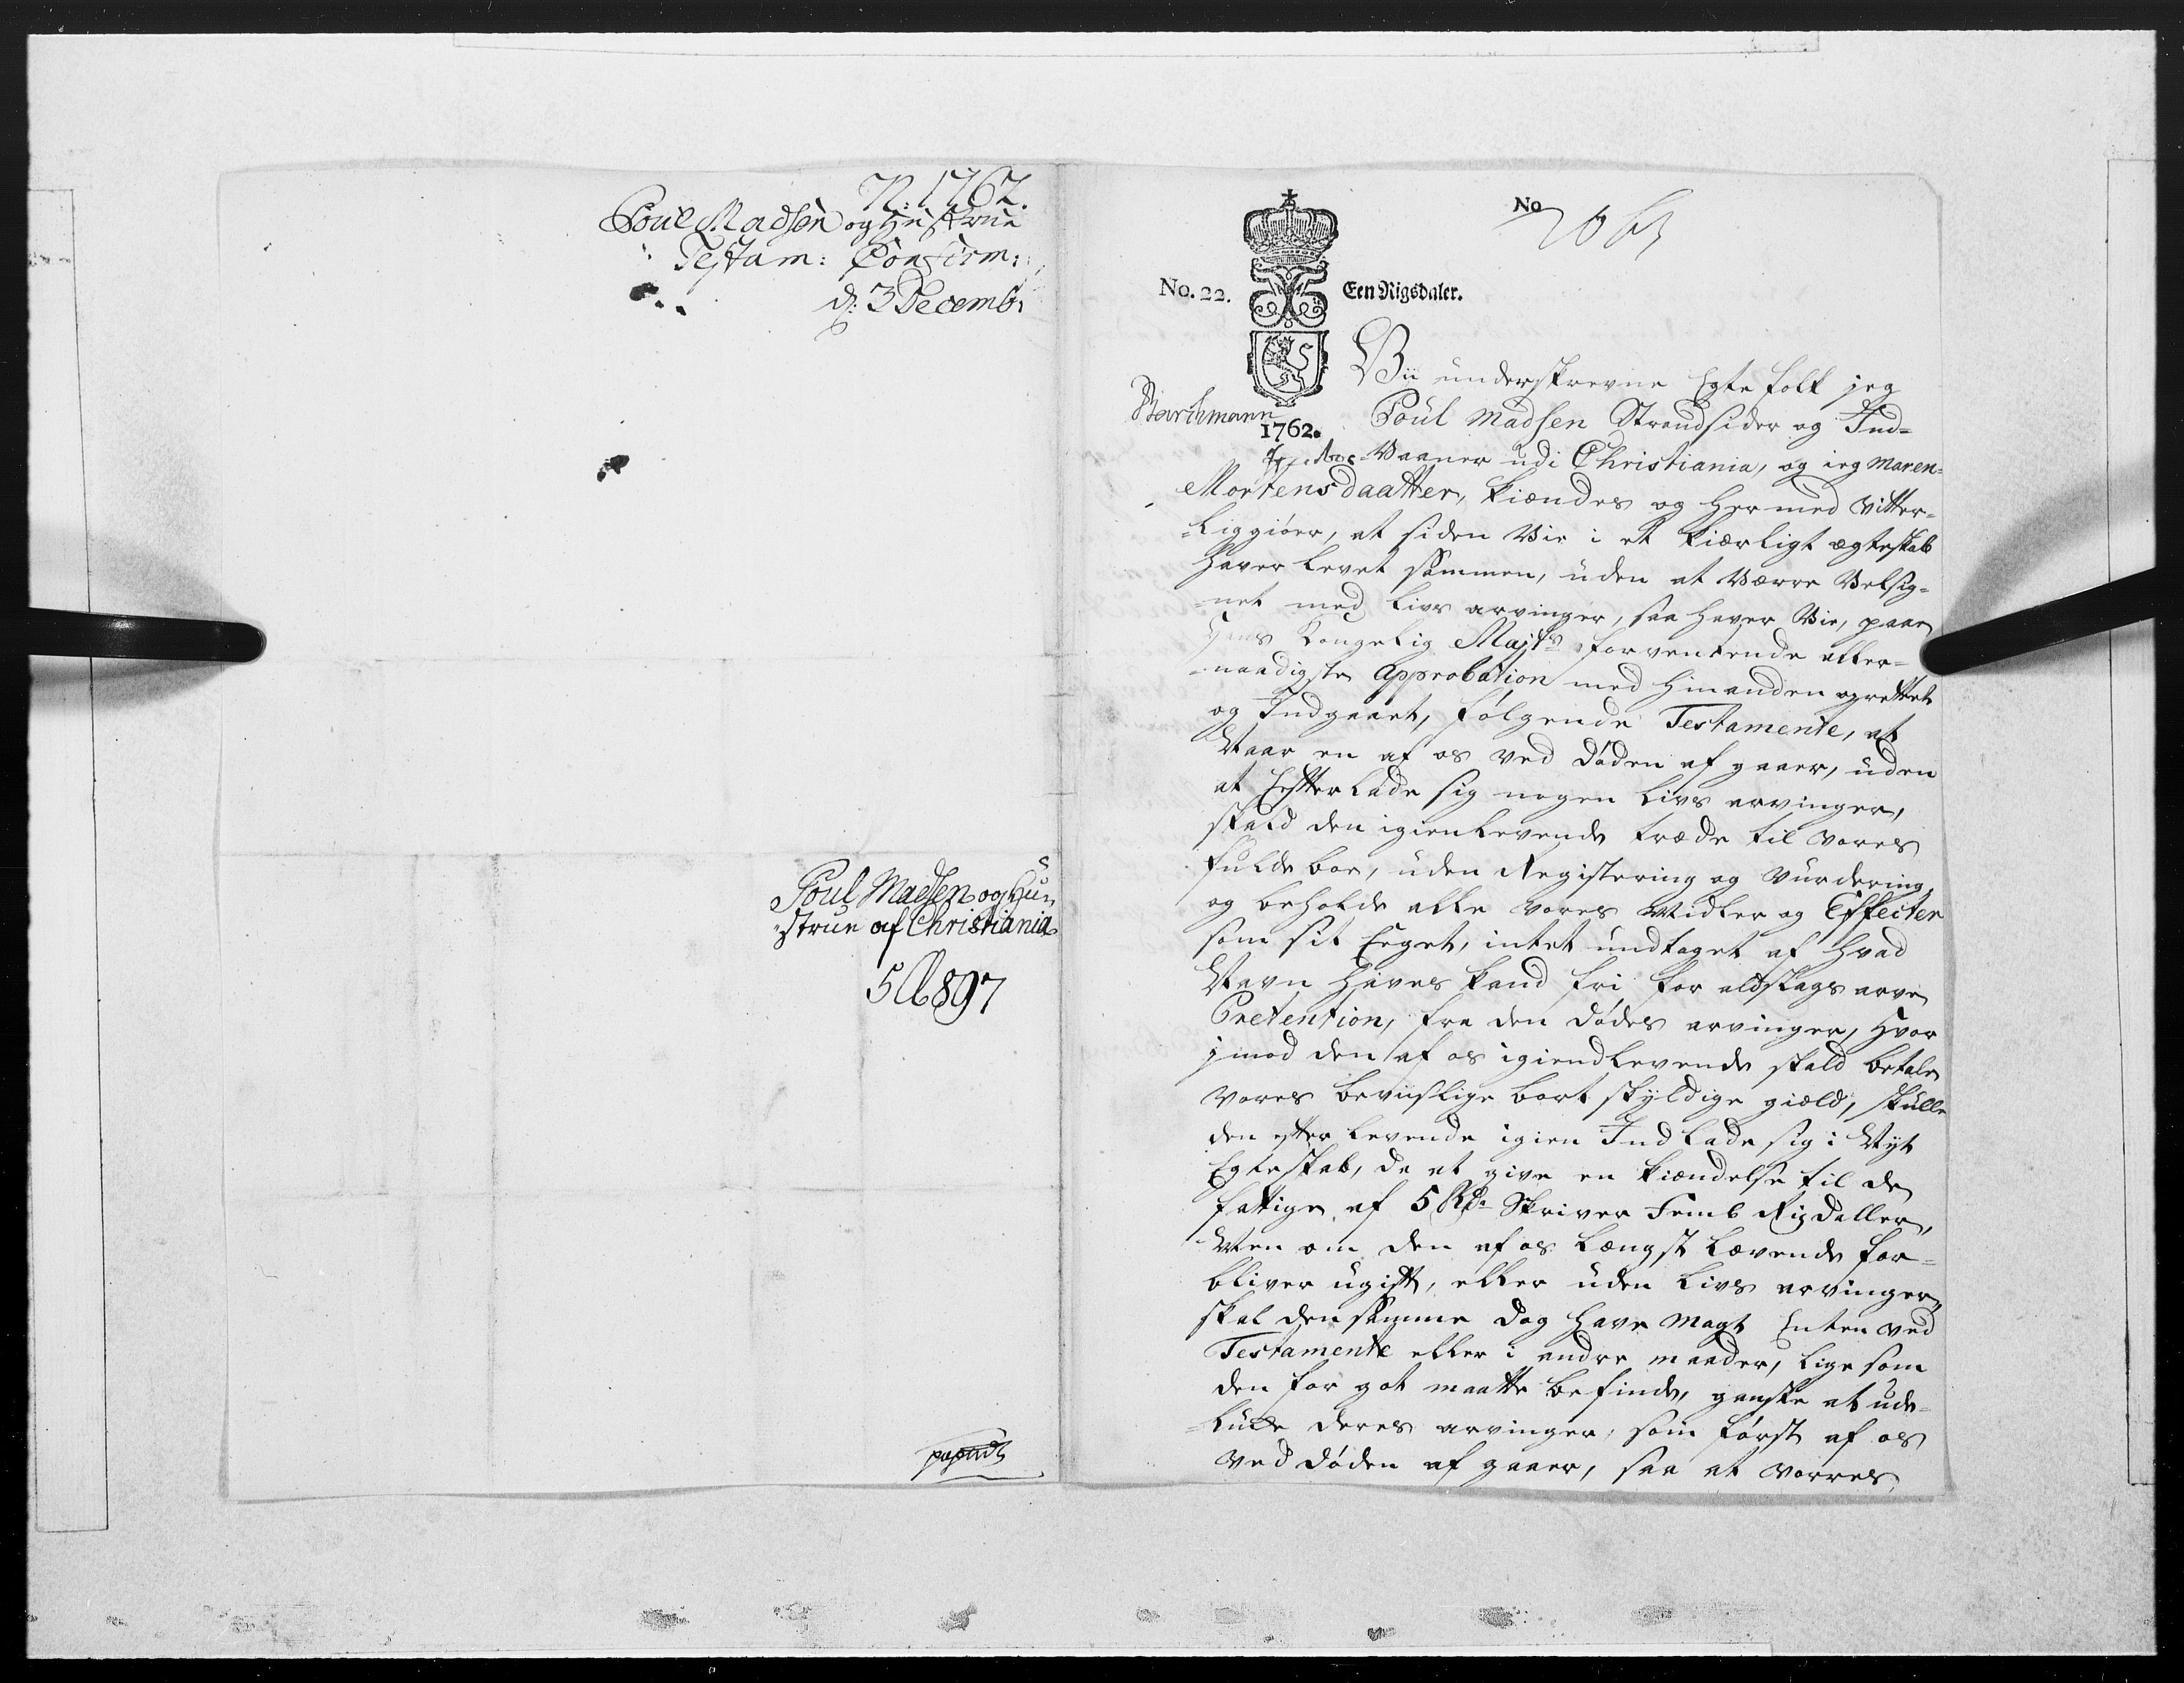 N: 1762.
Poul Madsen og Hustrue
Testam: Confirm:
d: 3 Decemb:
Poul Madsen og Hu-
strue af Christiania
5 897
No
No. 22.
Een Rigsdaler.
1762.
Vii underskrevne Egte folk jeg
Poul Madsen Strandsider og Ind-
-Vaaner udi Christiania, og ieg Maren
Mortensdaatter, kiændes og her med vitter-
-liggiører, at siden Vie i et kiærligt ægteskab
haver levet sammen, uden at Værre Velsig-
-net med livs arvinger, saa haver Vie, paa
Hans Kongelig Majts forventende aller-
-naadigste Approbation med hinanden oprettet
og Indgaaet, følgende Testamente, at
Naar en af os ved døden af gaaer, uden
at Efterlade sig nogen livs arvinger,
skald den igienlevende træde til vores
fulde boe, uden Registering og Vurdering,
og beholde alle vores Midler og Effecter
som sit Eeget, intet undtaget af hvad
Navn haves kand fri for aldslags arve
Pretention, fra den dødes arvinger, hvor
jmod den af os igiendlevende skald betale
vores beviislige bort skyldige giæld, skulle
den efter levende igien Indlade sig i Nyt
Egteskab, da at give en kiændelse til de
fattige af 5 Rdr Skriver Femb Rigdaller,
Men om den af os længst lævende for-
bliver ugift, eller uden livs arvinger,
skal den samme dog have Magt Enten ved
Testamente eller i andre maader, lige som
den for got maatte befinde, ganske at ude-
-lucke deres arvinger, som først af os
ved døden af gaaer, saa at vorres